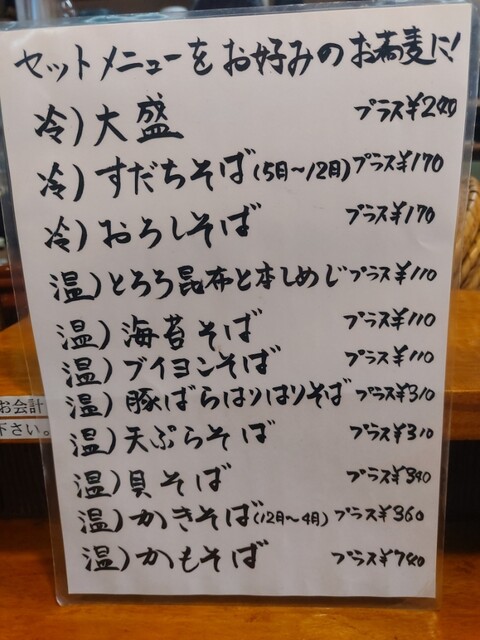 セットメニューをお好みのお蕎麦に!
冷)大盛 プラス¥240
冷)すだちそば(5月〜12月)プラス¥170
冷)おろしそば プラス¥170
温)とろろ昆布と本しめじプラス¥110
温)海苔そば プラス¥110
温)ブイヨンそば プラス¥110
温)豚ばらはりはりそば プラス¥310
温)天ぷらそば プラス¥310
温)貝そば プラス¥340
温)かきそば(12月〜4月) プラス¥360
温)かもそば プラス¥740
お会計
下さい。